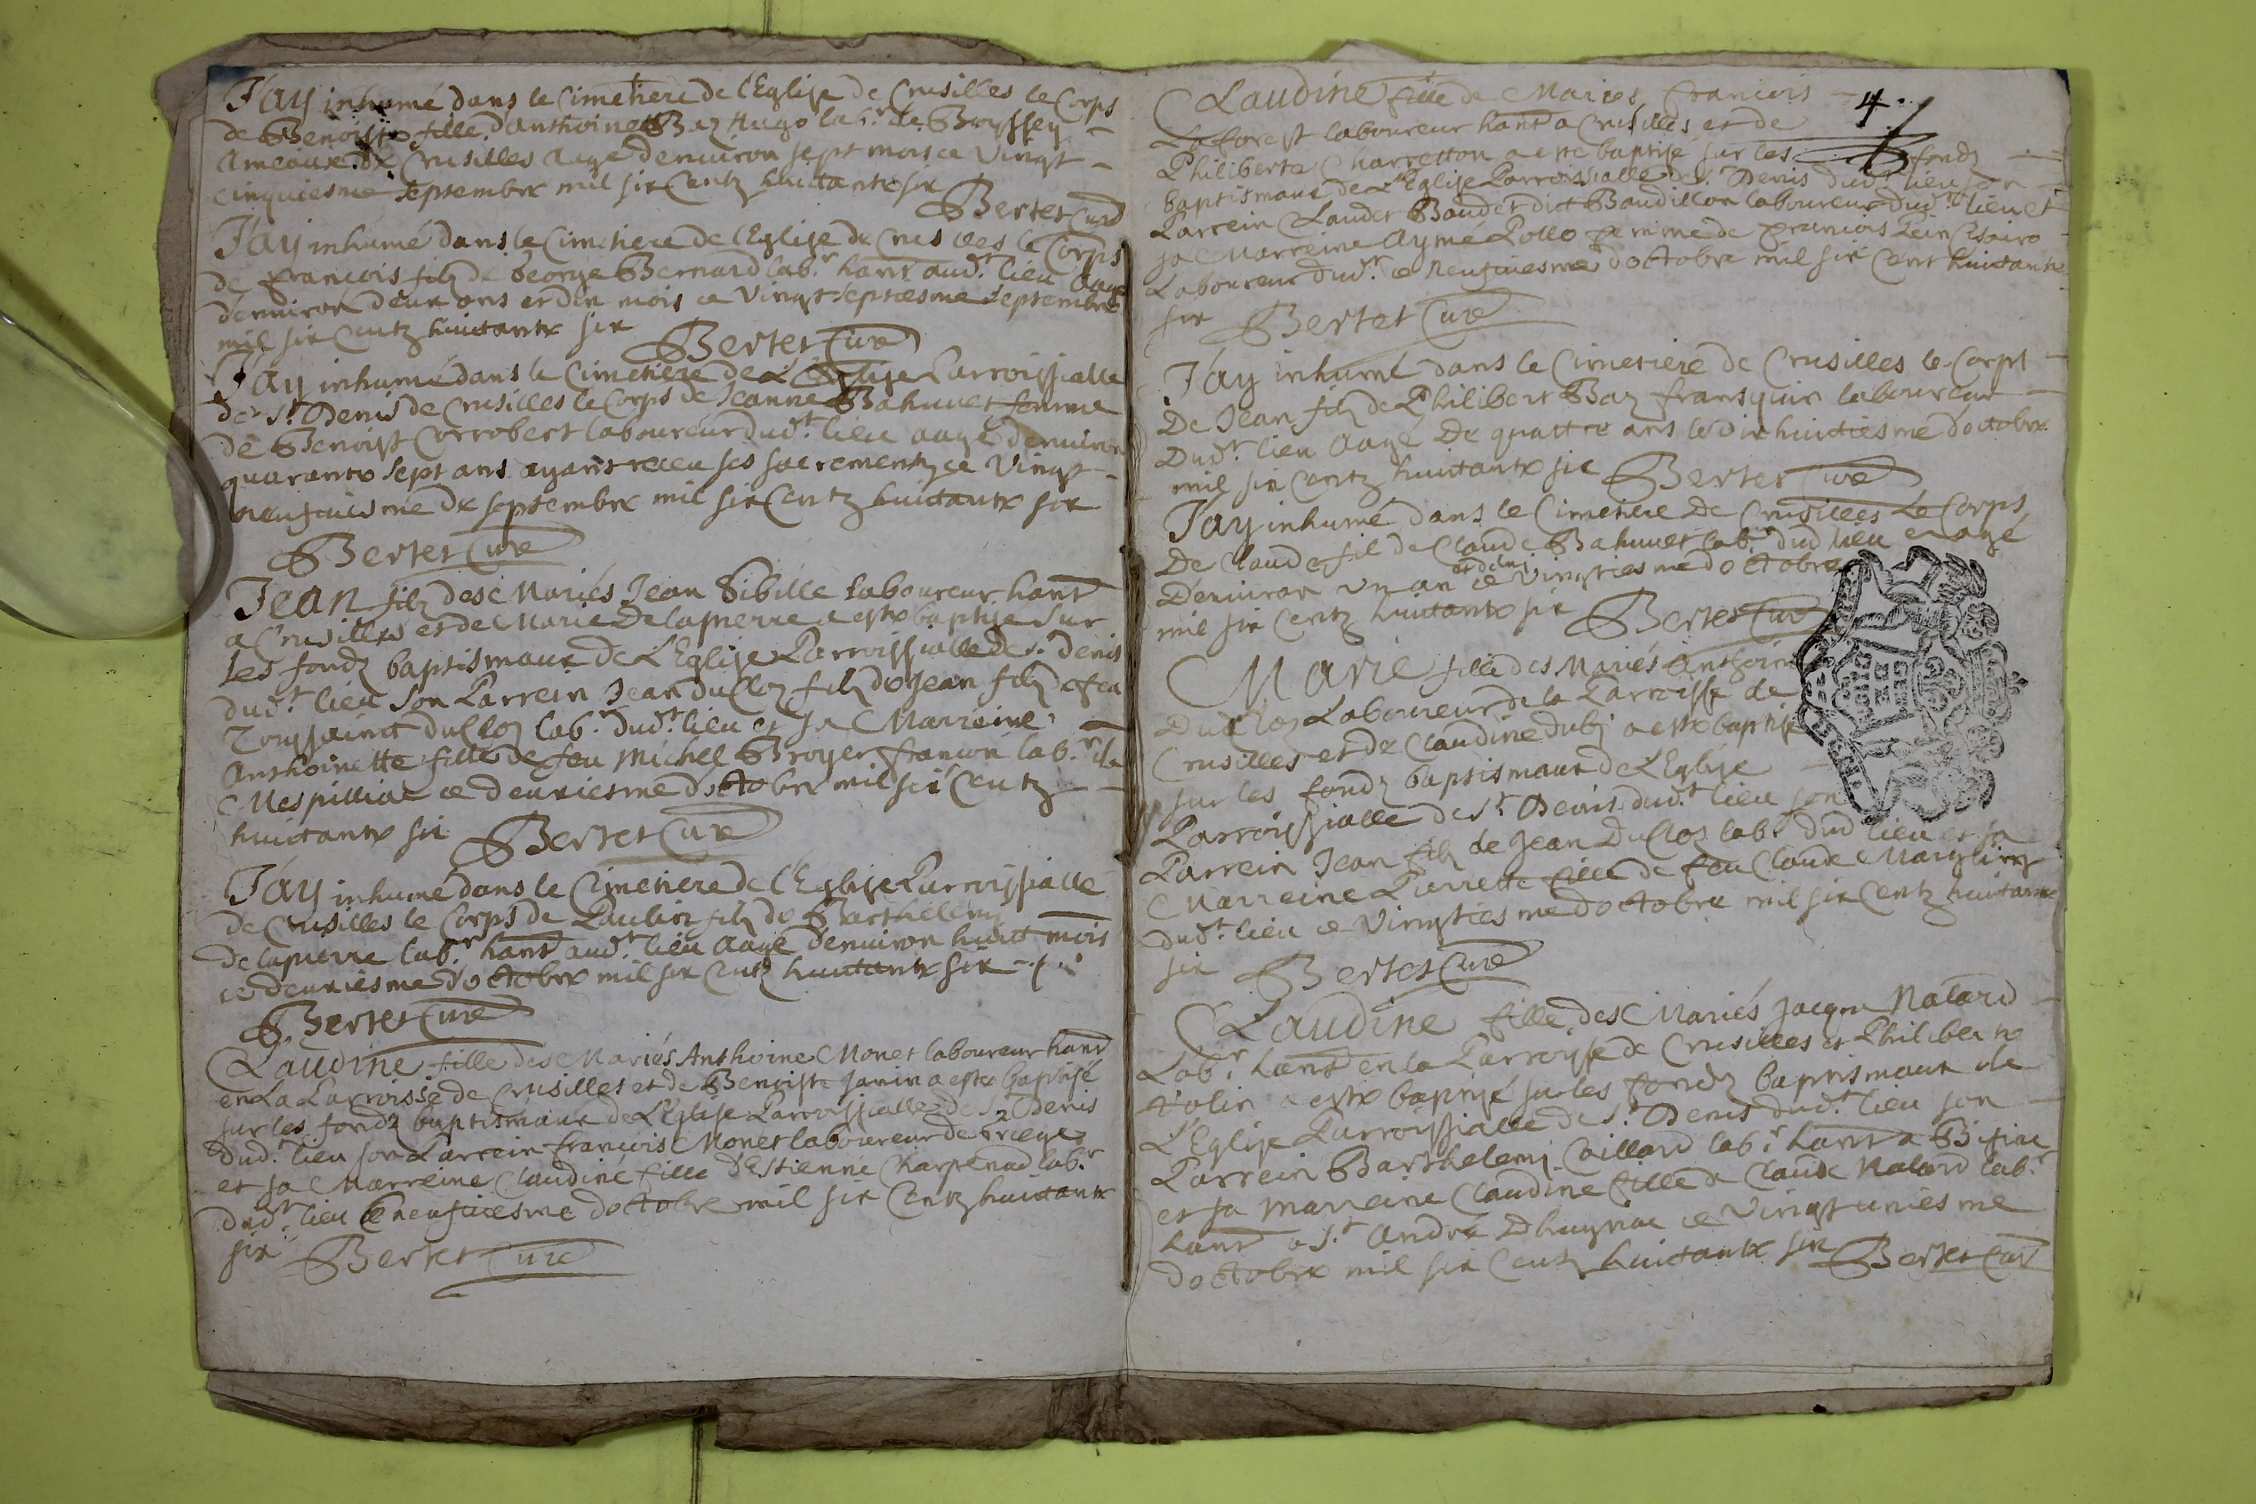 Jay inhumé dans le Cimetiere de l'Eglise de Crusilles le Corps
de Benoiste fille d'anthoine Baz hugo lab.r de Broyssey
Ameaux de Crusilles aagé denuiron sept mois ce Vingt
cinquiesme septembre mil six Centz huictante six
Bertet Curé
Jay inhumé dans le Cimetiere de l'Eglise de Crusilles le Corps
de francois filz de George Bernard lab.r hant aud.t lieu aagé
denuiron deux ans et dix mois ce Vingt septiesme septembre
mil six Centz huictante six
Bertet Curé
Jay inhumé dans le Cimetiere de L'Eglise Parroissialle
de S.t Denis de Crusilles le Corps de Jeanne Bahuuet femme
de Benoist Corrobert laboureur dud.t lieu aagé denuiron
quarante sept ans ayant receu ses sacrementz ce Vingt
neufuiesme de septembre mil six Centz huictante six
Bertet Curé
Jean filz des Mariés Jean Sibille laboureur hant
a Crusilles et de Marie Delapierre a esté baptisé sur
les fondz baptismaux de L'Eglise Parroissialle de S.t denis
dud.t lieu son Parrein Jean duCloz filz de Jean filz de feu
Toussainct duCloz lab.r dud.t lieu et sa Marreine
Anthoinette fille de feu Michel Broyer francon lab.r de
Mespilliat ce deuxiesme d'octobre mil six Centz
huictante six Bertet Curé
Jay inhumé dans le Cimetiere de l'Eglise Parroissialle
de Crusilles le Corps de Paulin filz de Barthelemy
delapierre lab.r hant aud.t lieu Aagé denuiron huict mois
ce deuxiesme d'octobre mil six Centz huictante six
Bertet Curé
Claudine fille des Mariés Anthoine Monet laboureur hant
en La Parroisse de Crusilles et de Benoiste Janin a esté baptisé
sur les fondz baptismaux de L'Eglise Parroissialle de S.t Denis
dud.t lieu son Parrein francois Monet laboureur de
et sa Marreine Claudine fille d'Estienne Charpenad lab.r
dud.t lieu Ce neufuiesme d'octobre mil six Centz huictante
six Bertet Curé
Claudine fille de Mariés francois
4.
Laforest laboureur hant a Crusilles et de
Philiberte Charretton a esté baptisé sur les fondz
baptismaux de L'Eglise Parroissialle de S.t Denis dud.t lieu son
Parrein Claudet Baudet dict Baudillon laboureur dud.t lieu et
sa Marreine Aymé Pollo femme de francois
Laboureur dud.t ce neufuiesme d'octobre mil six Cent huictante
six Bertet Curé
Jay inhumé dans le Cimetiere de Crusilles le Corps
De Jean filz de Philibert Baz fransquin laboureur
Dud.t lieu Aagé De quattre ans le dixhuictiesme d'octobre
mil six Centz huictante six Bertet Curé
Jay inhumé dans le Cimetiere De Crusilles Le Corps
De Claude fil de Claude Bahuuet lab.r dud lieu aagé
Denuiron Vn an et demi ce Vingtiesme d'octobre
mil six Centz huictante six Bertet Curé
Marie fille des Mariés Anthoine
Du Cloz Laboureur de la Parroisse de
Crusilles et de Claudine dubi a esté baptisé
sur les fondz baptismaux de L'Eglise
Parroissialle de S.t Denis dud.t lieu son
Parrein Jean filz de Jean DuCloz lab.r dud lieu et sa
Marreine Pierrette fille de feu Claude
dud.t lieu ce Vingtiesme d'octobre mil six Centz huictante
six Bertet Curé
Claudine fille des Mariés Jacque Nalard
Lab.r hant en la Parroisse de Crusilles et Philiberte
Volin a esté baptisé sur les fondz baptismaux de
L'Eglise Parroissialle de S.t Denis dud.t lieu son
Parrein Barthelemi Caillard lab.r hant a
et sa Marreine Claudine fille de Claude Nalard lab.r
hant a S.t André Dhuyriac ce Vingt uniesme
d'octobre mil six Centz huictante six Bertet Curé